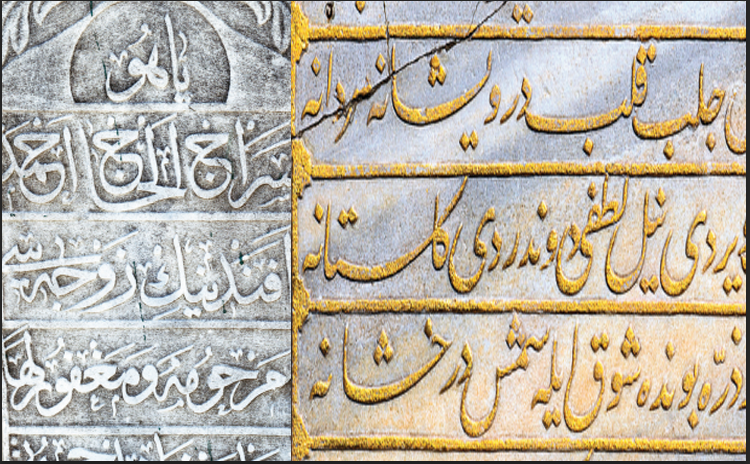 يا هو
سراج الحاج احمد
افندينك زوجه سی
مرحومه و مغفور لها
جلب قلب درويشانه مردانه
يردی نيل لطفی دوندردی كلستانه
ذرّه بونده شوق ايله شمس درخشانه